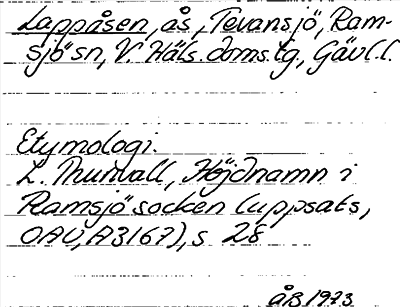 Lappåsen, ås, Tevansjö, Ram-
sjö sn, V. Häls. doms.tg, Gävl.l.
Etymologi.
L. Thunvall, Höjdnamn i
Ramsjö socken (uppsats,
OAU, A3167), s 28
ÅB 1973